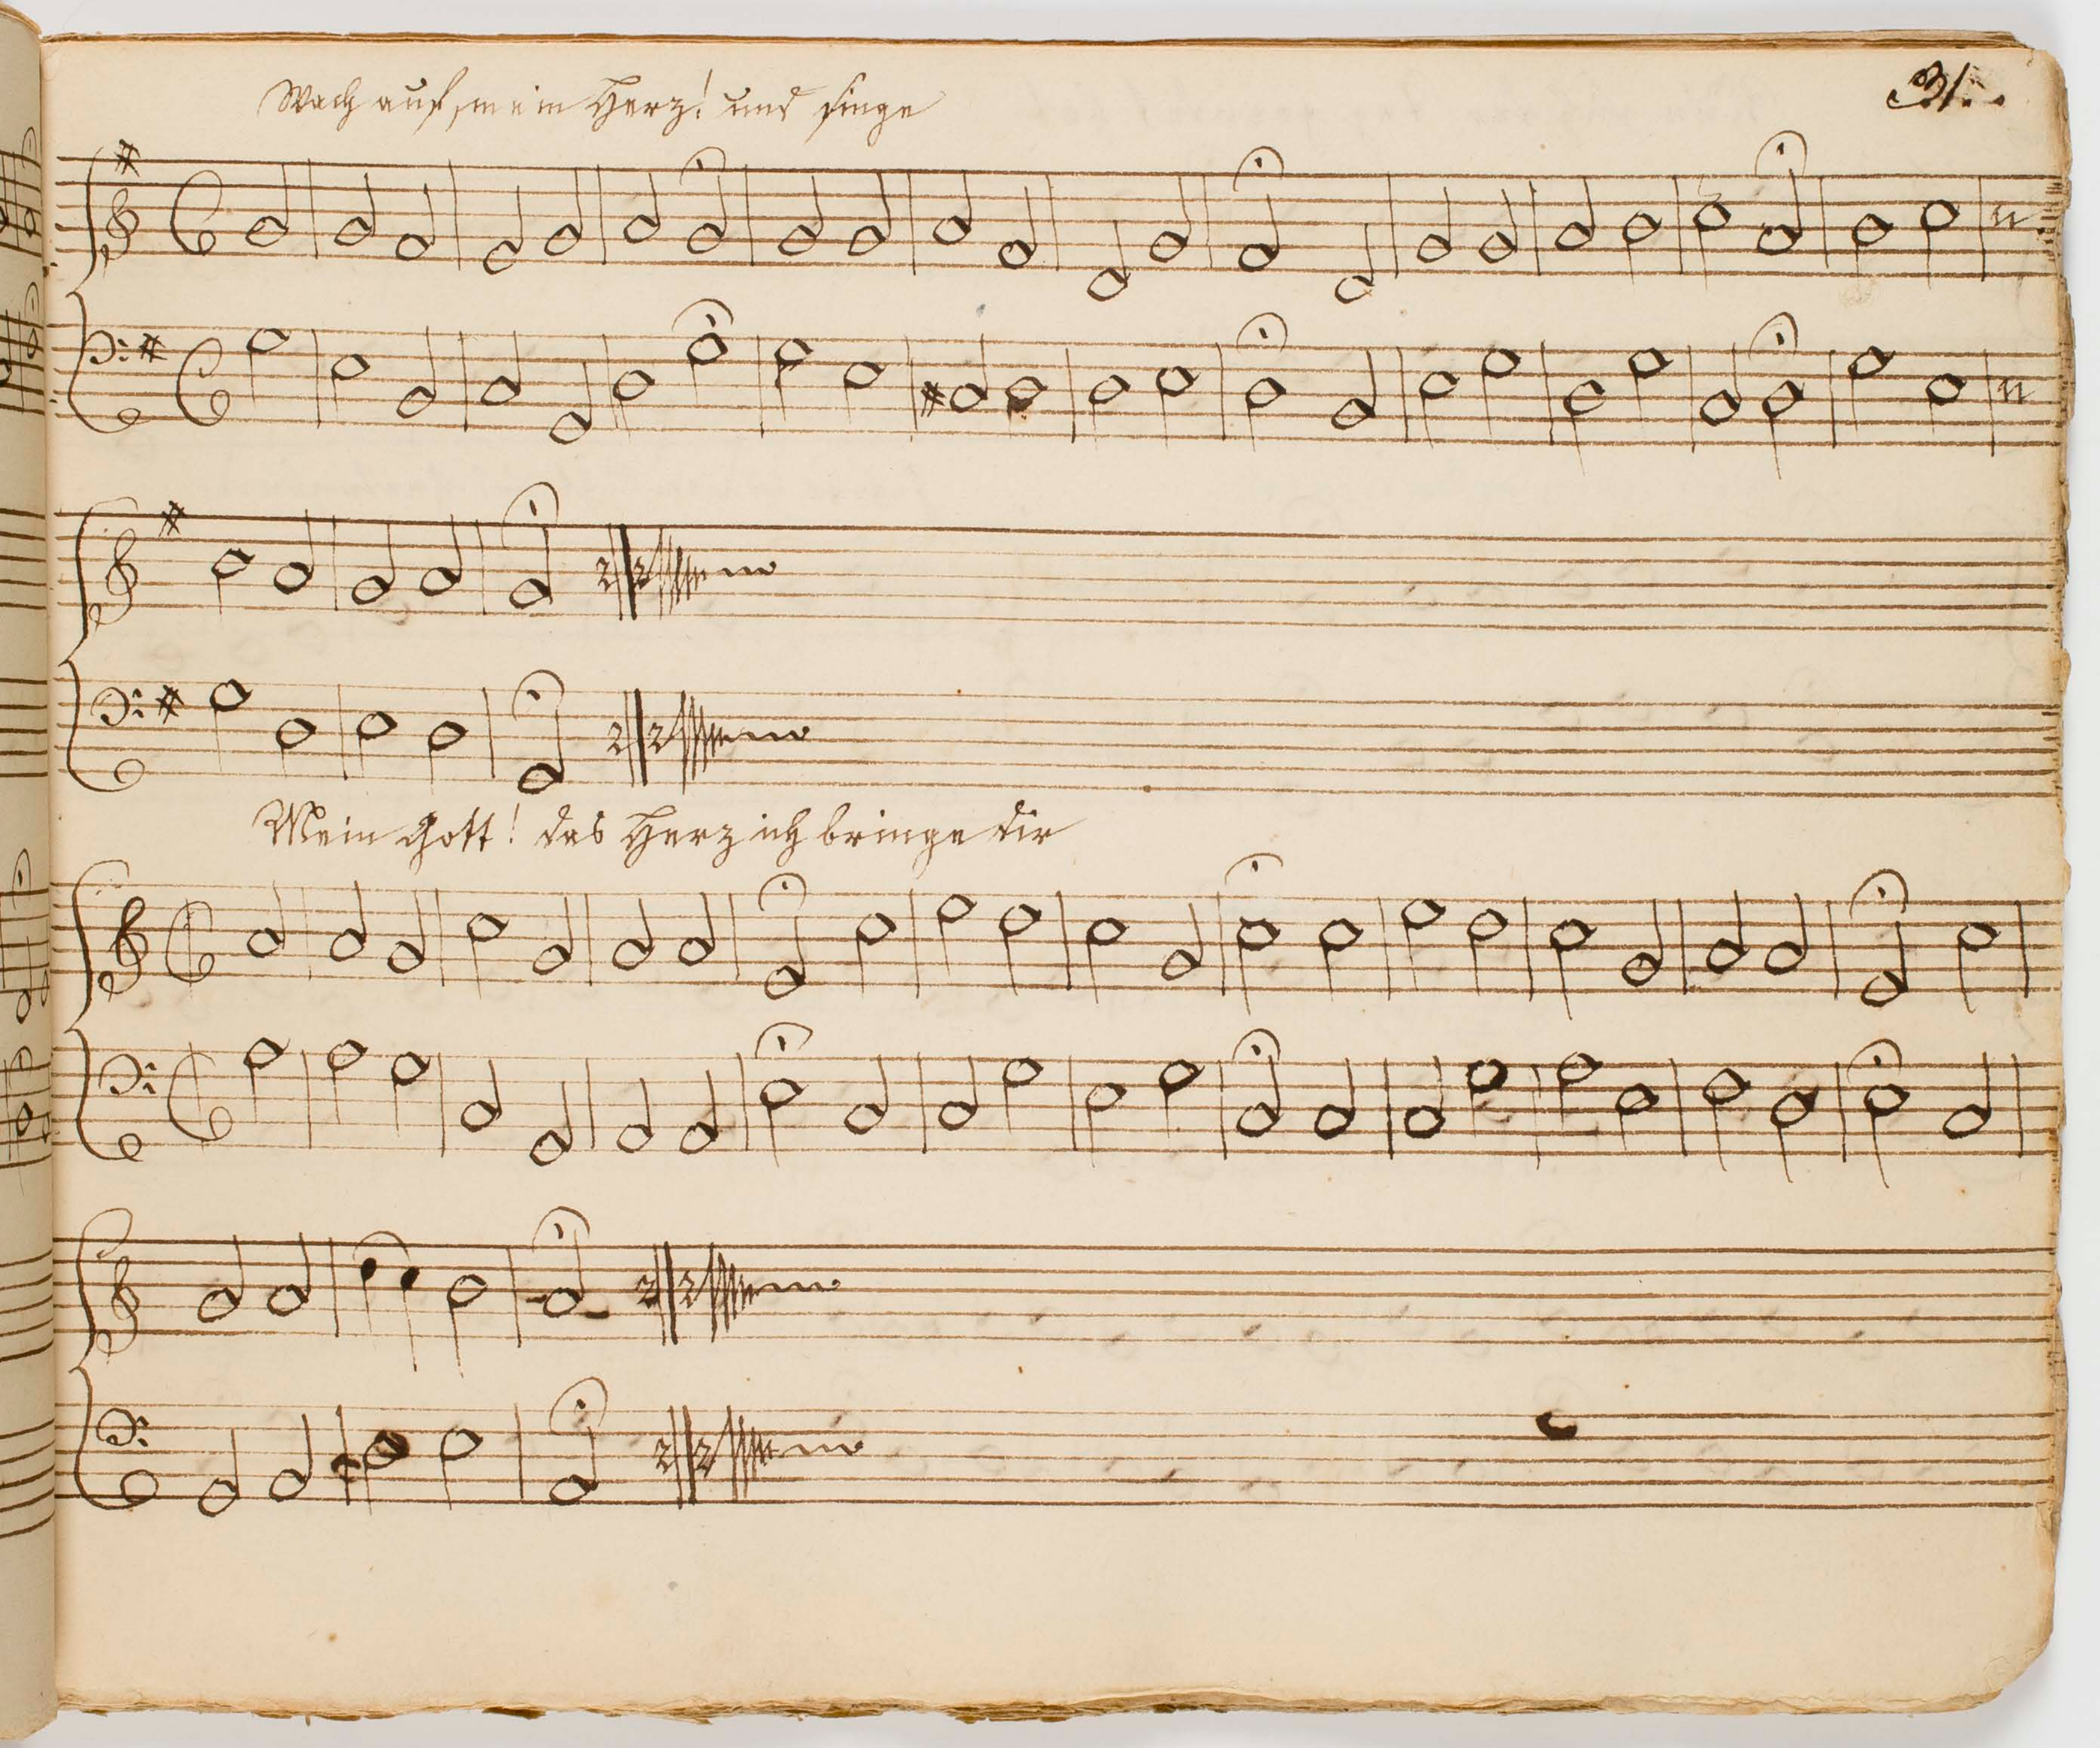 31.
Wach auf, mein Herz! und singe
Mein Gott! das Herz ich bringe dir